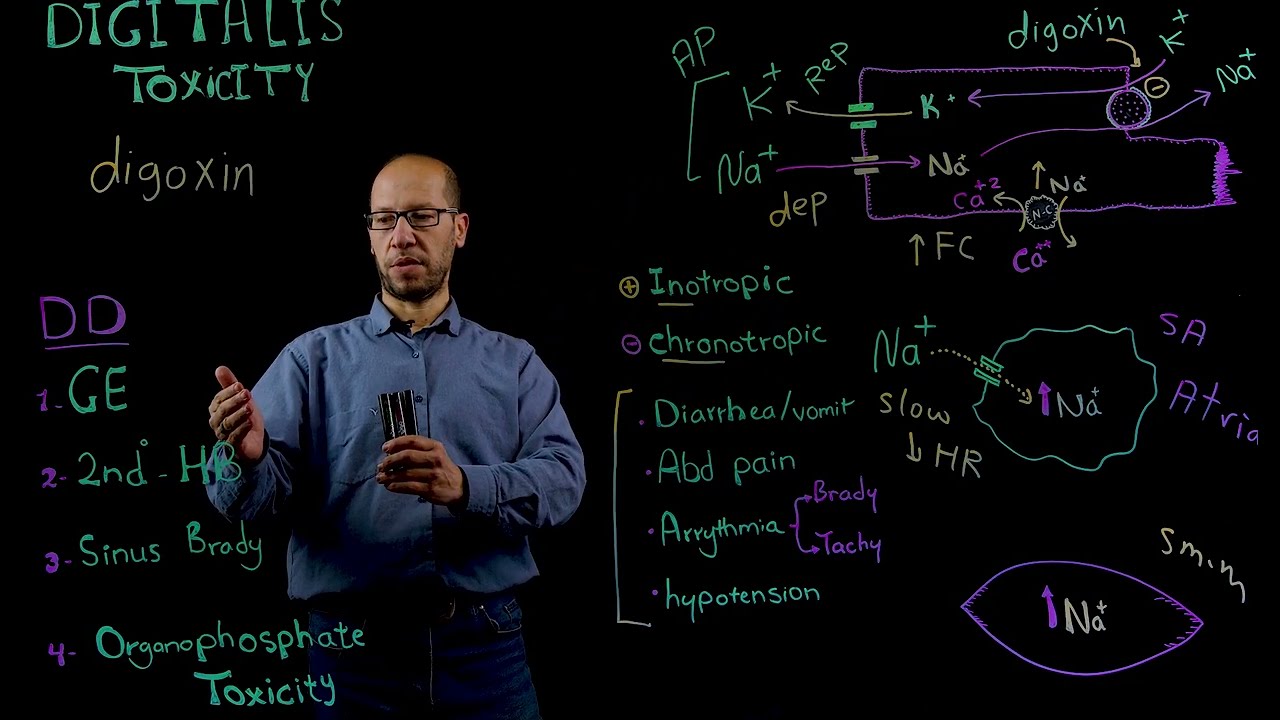 DIGITALIS
TOXICITY
digoxin
DD
1- GE
2- 2nd° - HB
3- Sinus Brady
4- Organophosphate
Toxicity
AP
K+
Rep
K+
Na+
dep
Na+
digoxin
K+
⊖
Na+
Ca+2
↑ Na+
N-C
Ca++
↑ FC
⊕ Inotropic
⊖ chronotropic
. Diarrhea/vomit
. Abd pain
. Arrythmia
Brady
Tachy
. hypotension
Na+
slow
↓ HR
↑ Na+
SA
Atria
Sm.m
↑ Na+